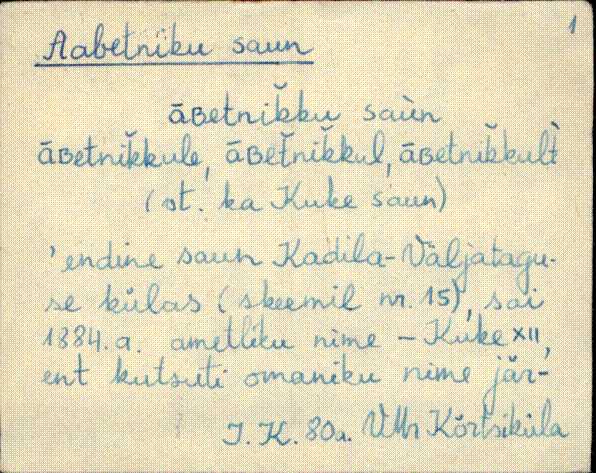 1
Aabetniku saun
āʙetnik̆ku saùn
āʙetnik̆kule, āʙet̆nik̆kul, āʙetnik̆kult̀
(vt. ka Kuke saun)
'endine saun Kadila-Väljatagu-
se külas (skeemil nr. 15), sai
1884. a. ametliku nime – Kuke XII,
ent kutsuti omaniku nime jär-
J. K. 80a. VMr Kõrtsiküla